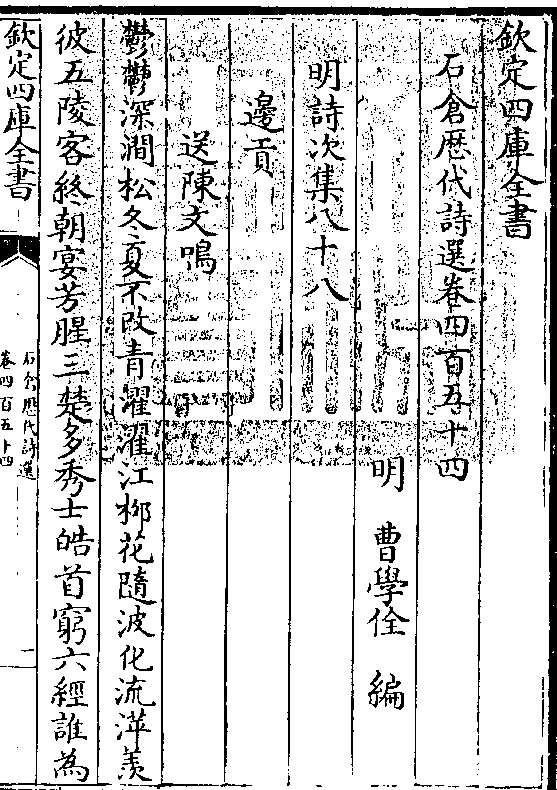 欽定四庫全書
石倉歴代詩選卷四百五十四
明 曹學佺 編
明詩次集八十八
邊貢
送陳文鳴
鬱鬱深澗松冬夏不改青濯濯江柳花隨波化流萍羨
彼五陵客終朝宴芳腥三楚多秀士皓首窮六經誰為
欽定四庫全書
石倉歴代詩選
卷四百五十四
一